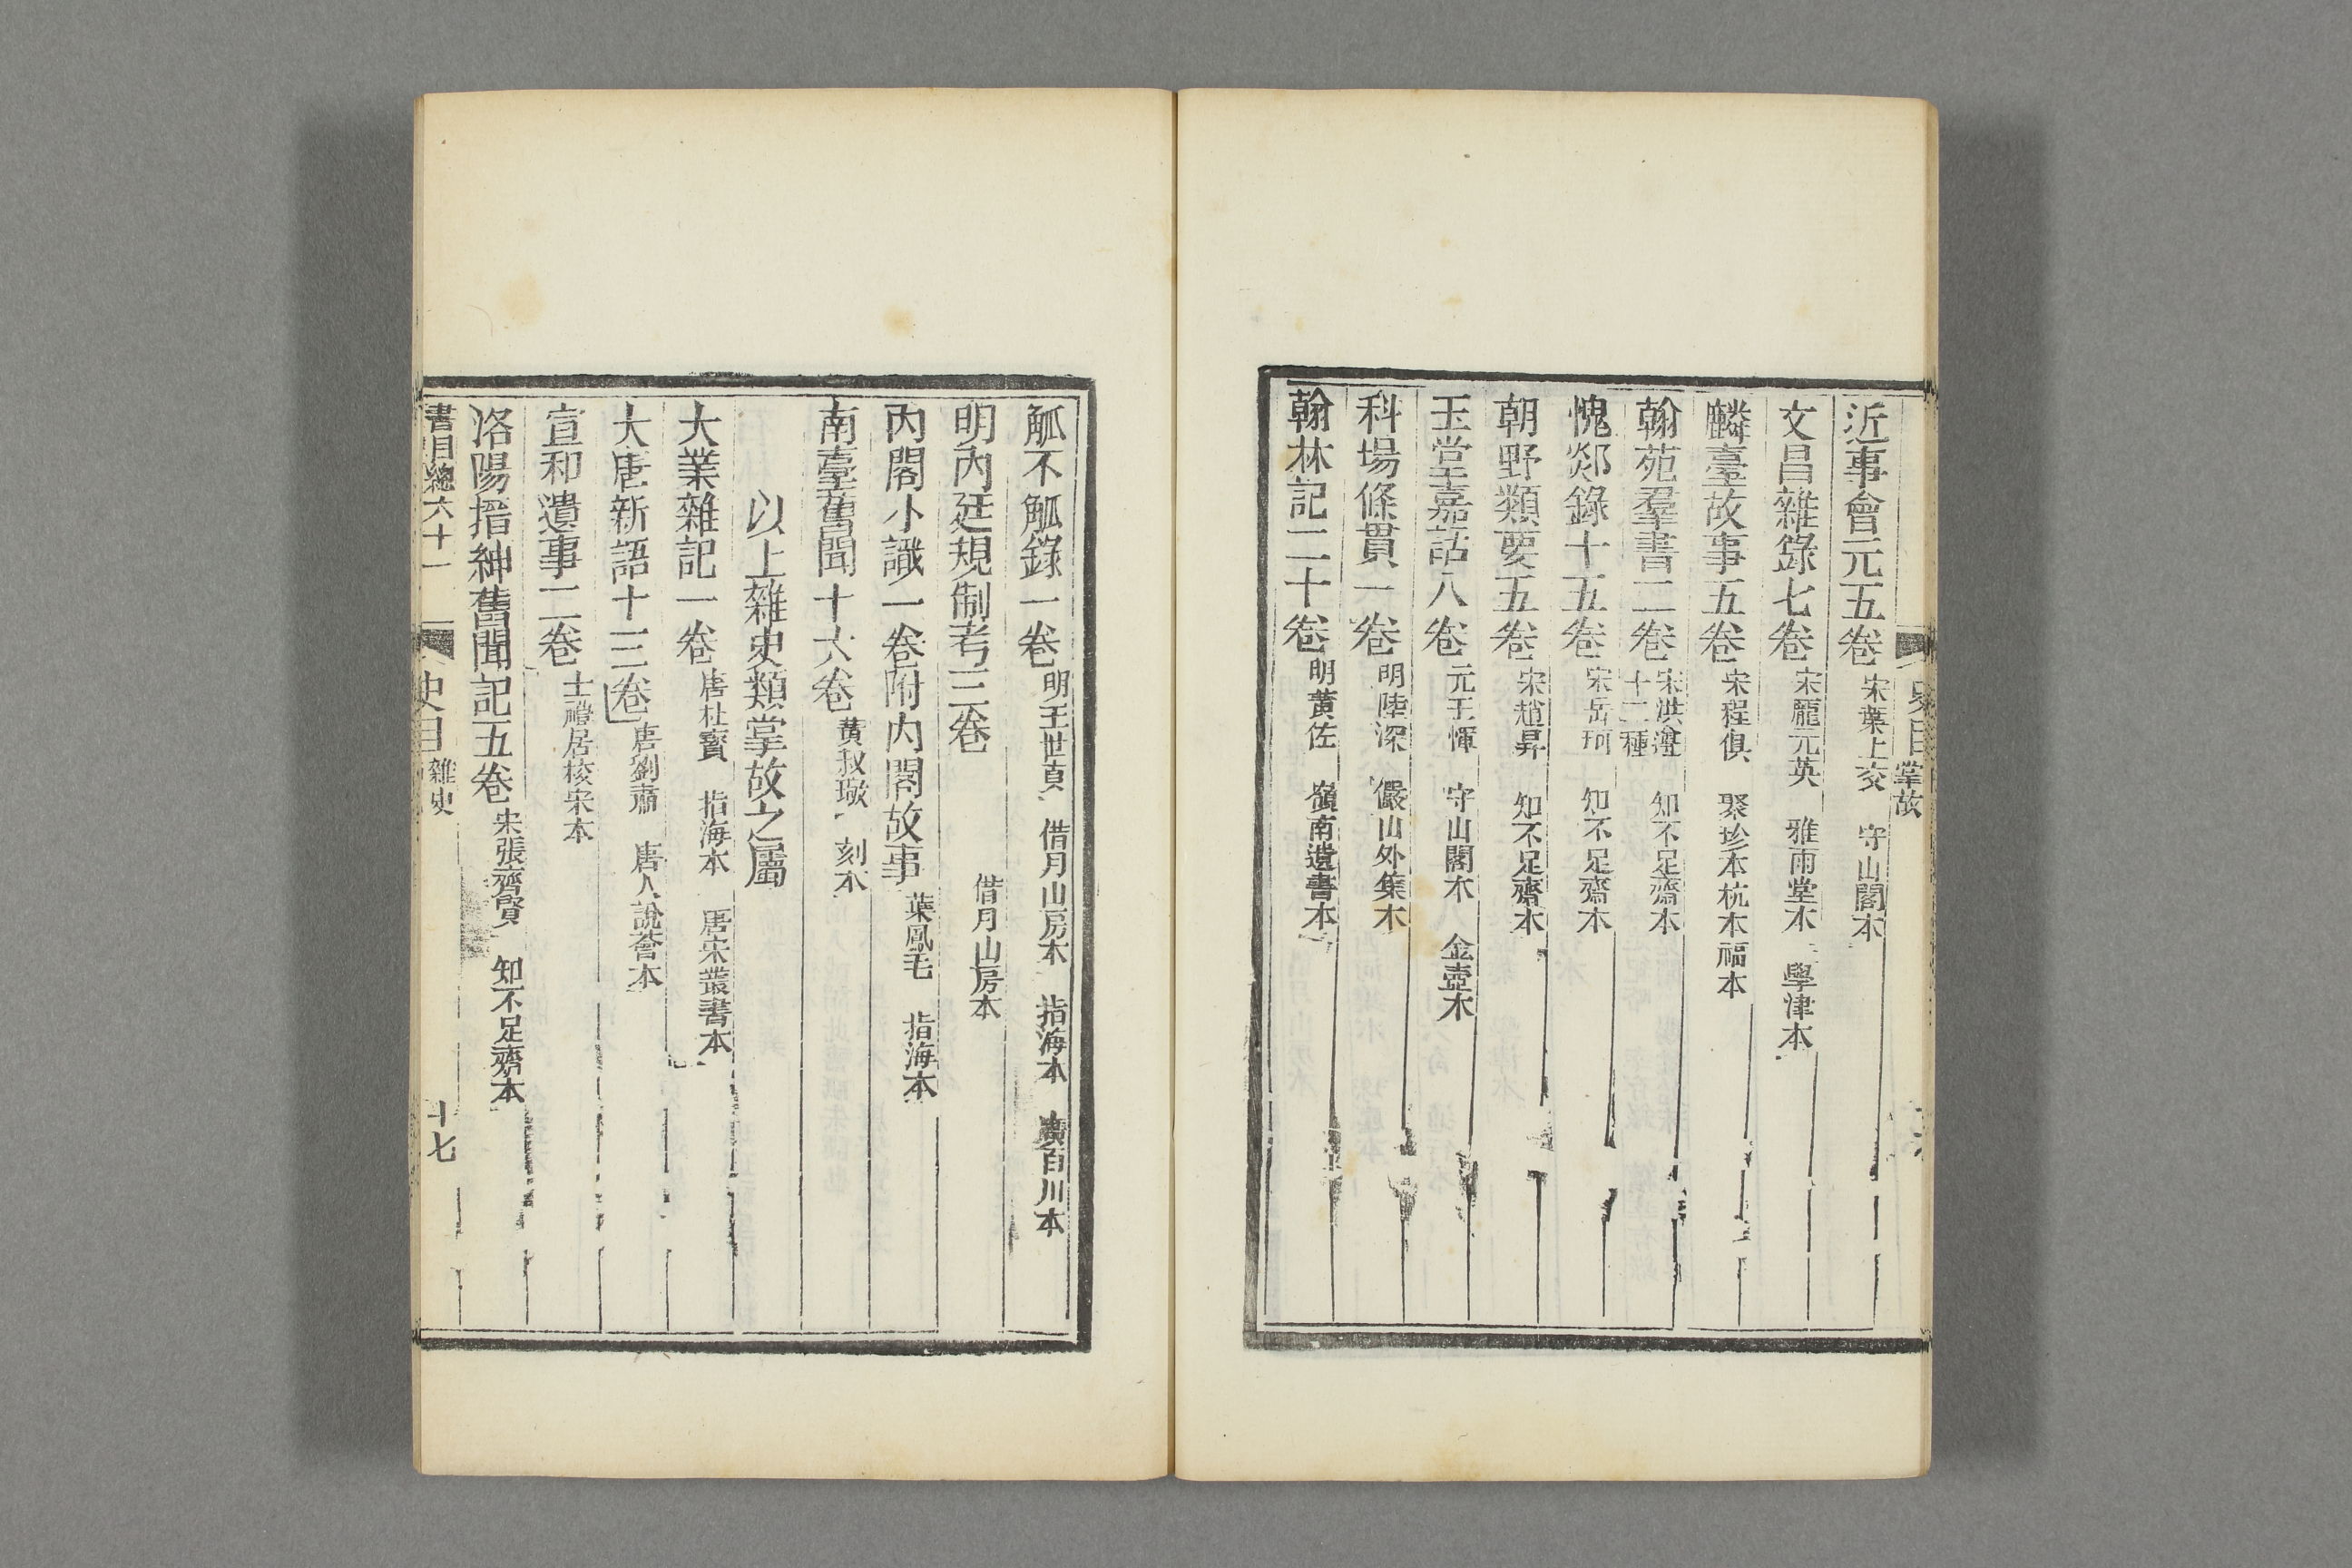 史目 掌故
近事會元五卷 宋葉上交 守山閣本
文昌雜錄七卷 宋龎元英 雅雨堂本 學津本
麟臺故事五卷 宋程俱 聚珍本杭本福本
翰苑羣書二卷 宋洪遵十二種 知不足齋本
愧郯錄十五卷 宋岳珂 知不足齋本
朝野類要五卷 宋趙昇 知不足齋本
玉堂嘉話八卷 元王惲 守山閣本 金壺本
科場條貫一卷 明陸深 儼山外集本
翰林記二十卷 明黃佐 嶺南遺書本
觚不觚錄一卷 明王世貞 借月山房本 指海本 廣百川本
明內廷規制考三卷 借月山房本
內閣小識一卷附內閣故事 葉鳳毛 指海本
南臺舊聞十六卷 黃叔璥 刻本
以上雜史類掌故之屬
大業雜記一卷 唐杜寶 指海本 唐宋叢書本
大唐新語十三卷 唐劉肅 唐人說薈本
宣和遺事二卷 士禮居校宋本
洛陽搢紳舊聞記五卷 宋張齊賢 知不足齋本
書目總六十一 史目 雜史 十七